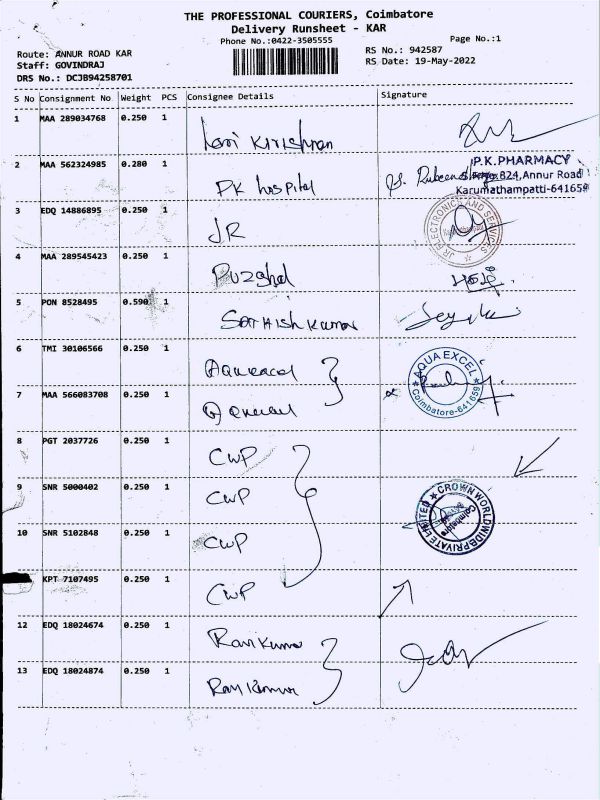 THE PROFESSIONAL COURIERS, Coimbatore
Delivery Runsheet - KAR
Phone No.:0422-3505555 Page No.:1
Route: ANNUR ROAD KAR RS No.: 942587
Staff: GOVINDRAJ RS Date: 19-May-2022
DRS No.: DCJB94258701
S No Consignment No Weight PCS Consignee Details Signature
1 MAA 289034768 0.250 1
2 MAA 562324985 0.280 1 PK hospital P.K.PHARMACY
S.F.No.824,Annur Road
Karumathampatti-641659
3 EDQ 14886895 0.250 1 JR JR ELECTRONICS AND SERVICES
4 MAA 289545423 0.250 1
5 PON 8528495 0.590 1 Sathish Kumar
6 TMI 30106566 0.250 1 AQUA EXCEL
7 MAA 566083708 0.250 1 Coimbatore-641659
8 PGT 2037726 0.250 1 CWP
9 SNR 5000402 0.250 1 CWP CROWN WORLDWIDE PRIVATE LIMITED
Coimbatore
10 SNR 5102848 0.250 1 CWP
KPT 7107495 0.250 1 CWP
12 EDQ 18024674 0.250 1 Ravi Kumar
13 EDQ 18024874 0.250 1 Ravi Kumar